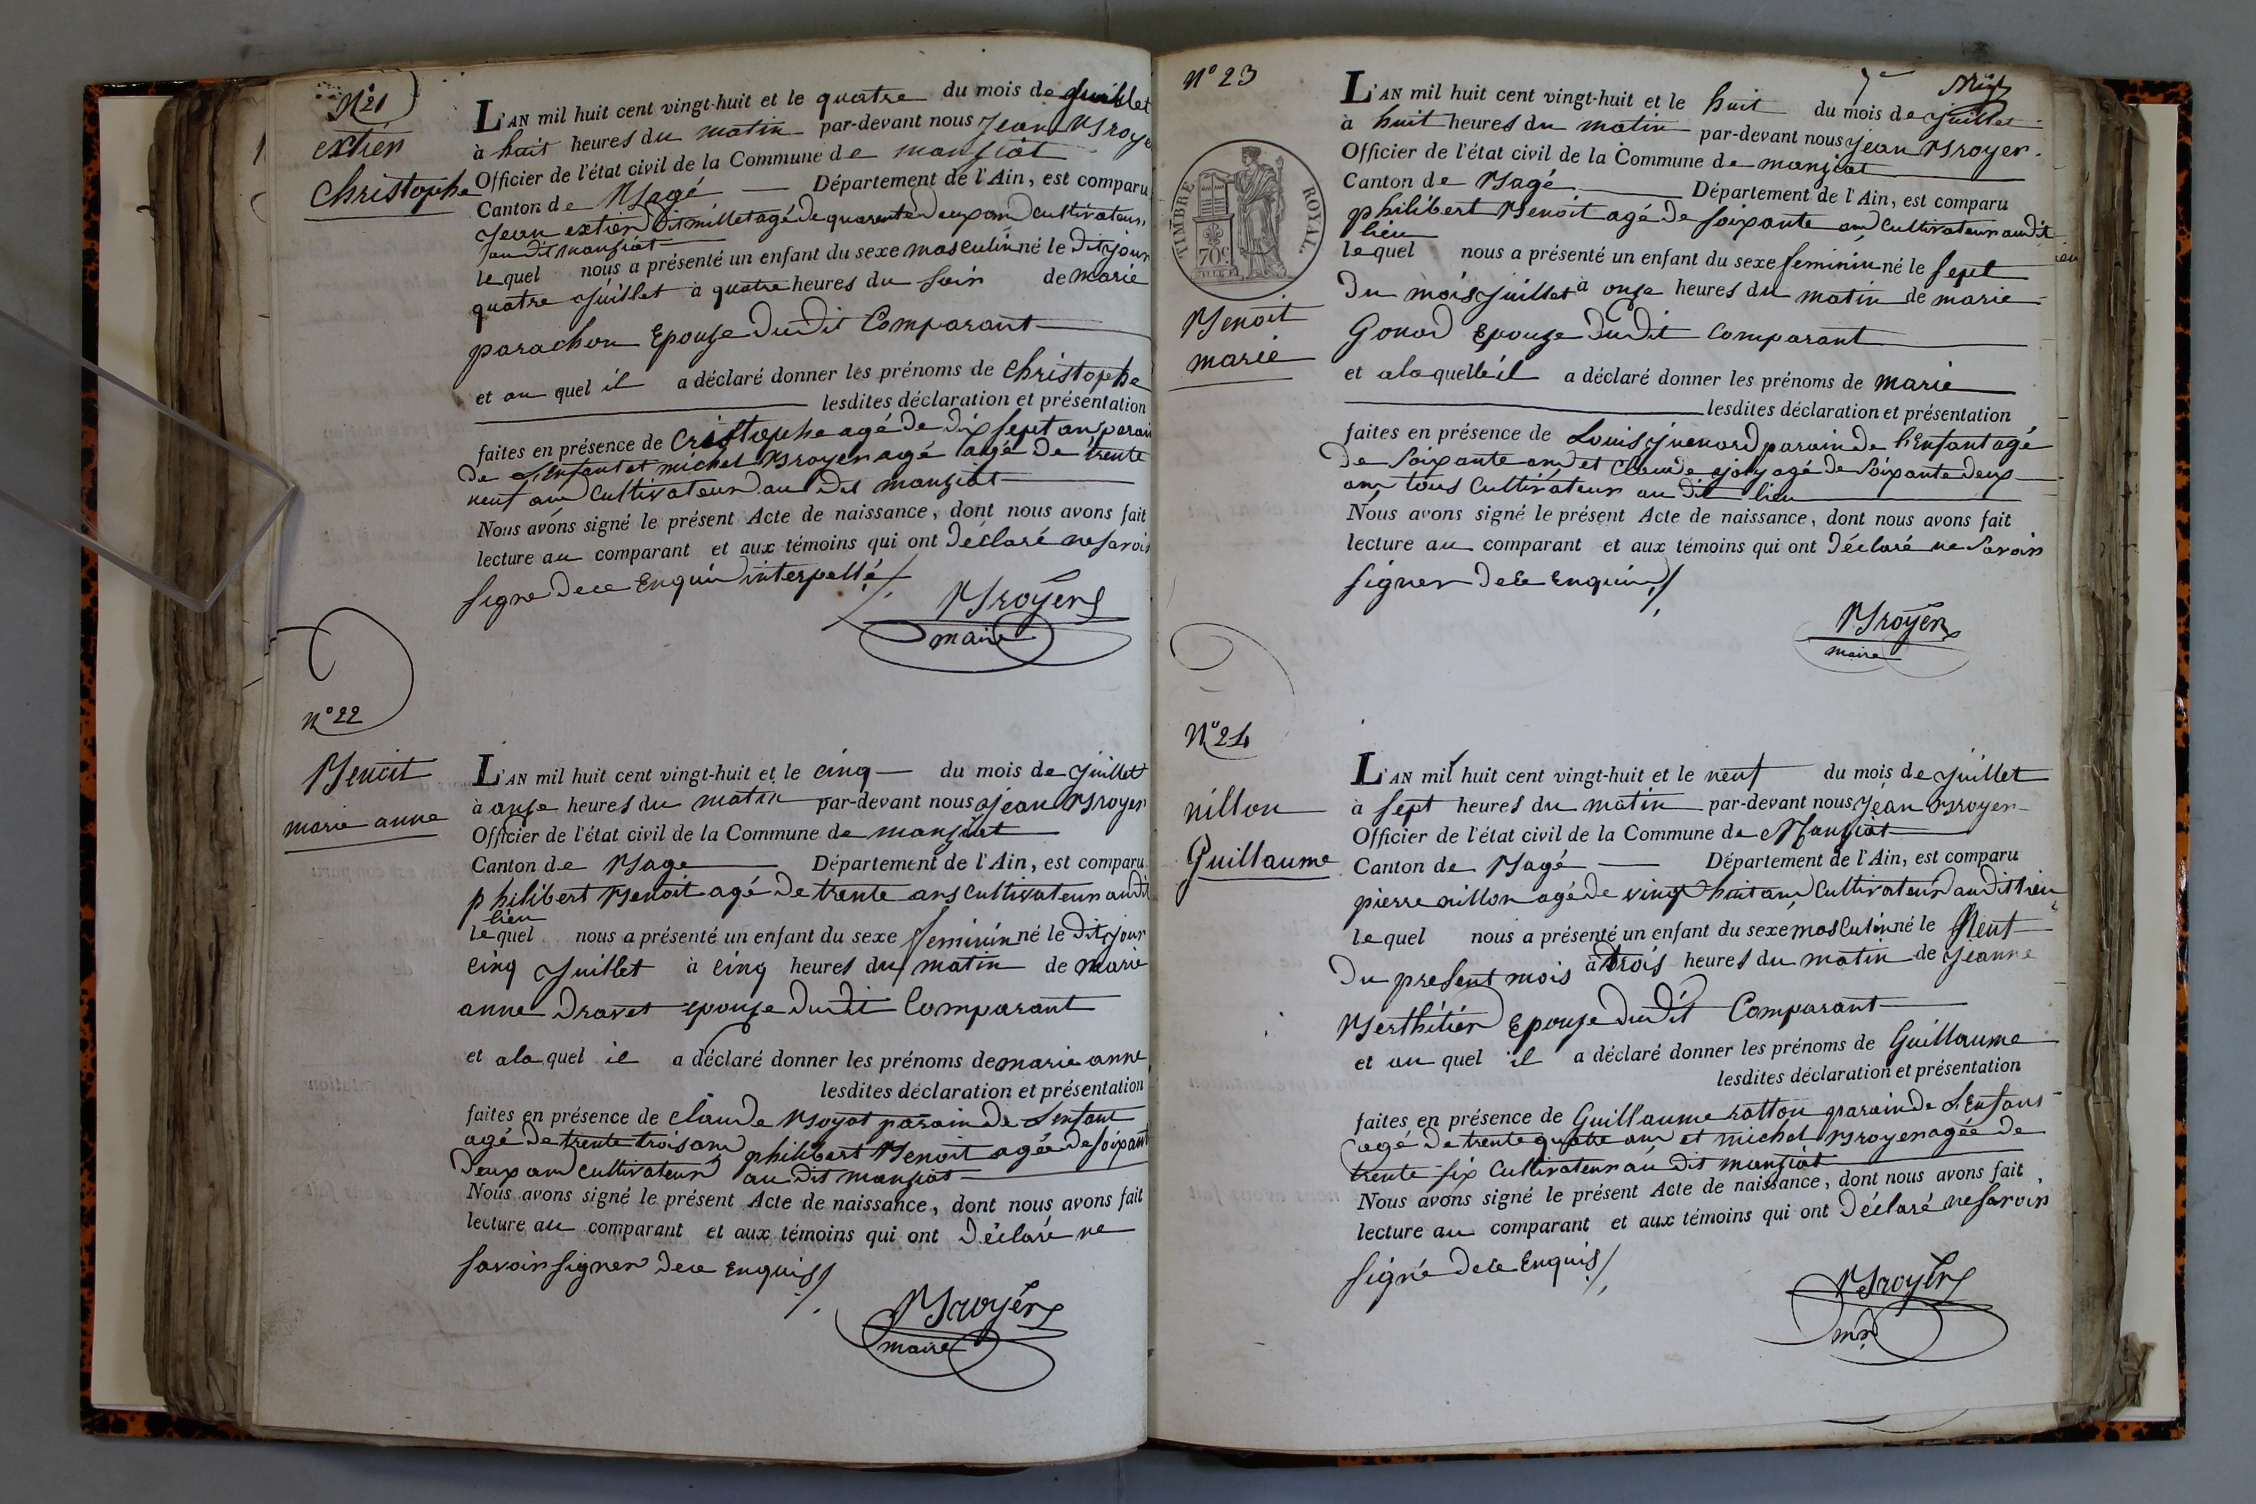 N° 21
extier
Christophe
L'AN mil huit cent vingt-huit et le quatre du mois de Juillet
à huit heures du matin par-devant nous Jean Broyer
Officier de l'état civil de la Commune de manziat
Canton de Bagé Département de l'Ain, est comparu
Jean extier dit millet agé de quarente deux ans cultivateur
au dit manziat
lequel nous a présenté un enfant du sexe masculin né le dit jour
quatre Juillet à quatre heures du soir de marie
parachon Epouze dudit Comparant
et au quel il a déclaré donner les prénoms de Christophe
lesdites déclaration et présentation
faites en présence de Cristophe agé de dix sept ans parain
de L'enfant et michel Broyer agé agé de trente
neuf ans Cultivateur au dit manziat
Nous avons signé le présent Acte de naissance, dont nous avons fait
lecture au comparant et aux témoins qui ont déclaré ne savoir
signe dece Enquis interpellé
Broyer
maire
N° 22
Benoit
marie anne
L'AN mil huit cent vingt-huit et le cinq du mois de Juillet
à onze heures du matin par-devant nous jean Broyer
Officier de l'état civil de la Commune de manziat
Canton de Bage Département de l'Ain, est comparu
philibert Benoit agé de trente ans cultivateur audit
lieu
lequel nous a présenté un enfant du sexe feminin né le dit jour
cinq Juillet à cinq heures du matin de marie
anne Dravet epouze dudit Comparant
et ala quel il a déclaré donner les prénoms de marie anne
lesdites déclaration et présentation
faites en présence de claude Boyat parain de L'enfant
agé de trente trois ans philibert Benoit agée de soixant
deux ans cultivateur au dit manziat
Nous avons signé le présent Acte de naissance, dont nous avons fait
lecture au comparant et aux témoins qui ont déclaré ne
savoir signer dece Enquis
Broyer
maire
N° 23
TIMBRE ROYAL
70c
Benoit
marie
L'AN mil huit cent vingt-huit et le huit du mois de Juillet
à huit heures du matin par-devant nous Jean Broyer
Officier de l'état civil de la Commune de manziat
Canton de Bagé Département de l'Ain, est comparu
philibert Benoit agé de soixante ans cultivateur audit
lieu
lequel nous a présenté un enfant du sexe feminin né le sept
du mois Juillet à onze heures du matin de marie
Gonod Epouze dudit Comparant
et ala quelle il a déclaré donner les prénoms de marie
lesdites déclaration et présentation
faites en présence de Louis parain de l'Enfant agé
de soixante ans et Claude joly agé de soixante deux
ans tous Cultivateur au dit lieu
Nous avons signé le présent Acte de naissance, dont nous avons fait
lecture au comparant et aux témoins qui ont déclaré ne savoir
signer dece Enquis
Broyer
maire
N° 24
nillon
Guillaume
L'AN mil huit cent vingt-huit et le neuf du mois de Juillet
à sept heures du matin par-devant nous Jean Broyer
Officier de l'état civil de la Commune de Manziat
Canton de Bagé Département de l'Ain, est comparu
pierre nillon agé de vingt huit ans Cultivateur audit lieu
lequel nous a présenté un enfant du sexe masculin né le Neuf
du present mois à trois heures du matin de Jeanne
Berthilier Epouze dudit Comparant
et au quel il a déclaré donner les prénoms de Guillaume
lesdites déclaration et présentation
faites en présence de Guillaume ratton parain de L'Enfant
agé de trente quatre ans et michel Broyer agée de
trente six Cultivateur au dit manziat
Nous avons signé le présent Acte de naissance, dont nous avons fait
lecture au comparant et aux témoins qui ont déclaré ne savoir
signé dece Enquis
Broyer
mre